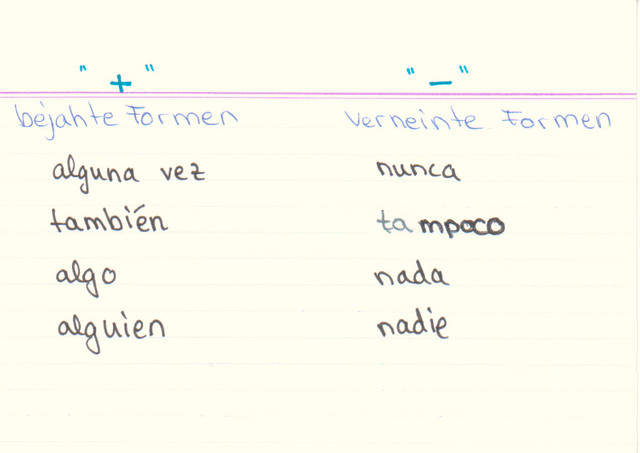 "+" "–"
bejahte Formen verneinte Formen
alguna vez nunca
también tampoco
algo nada
alguien nadie